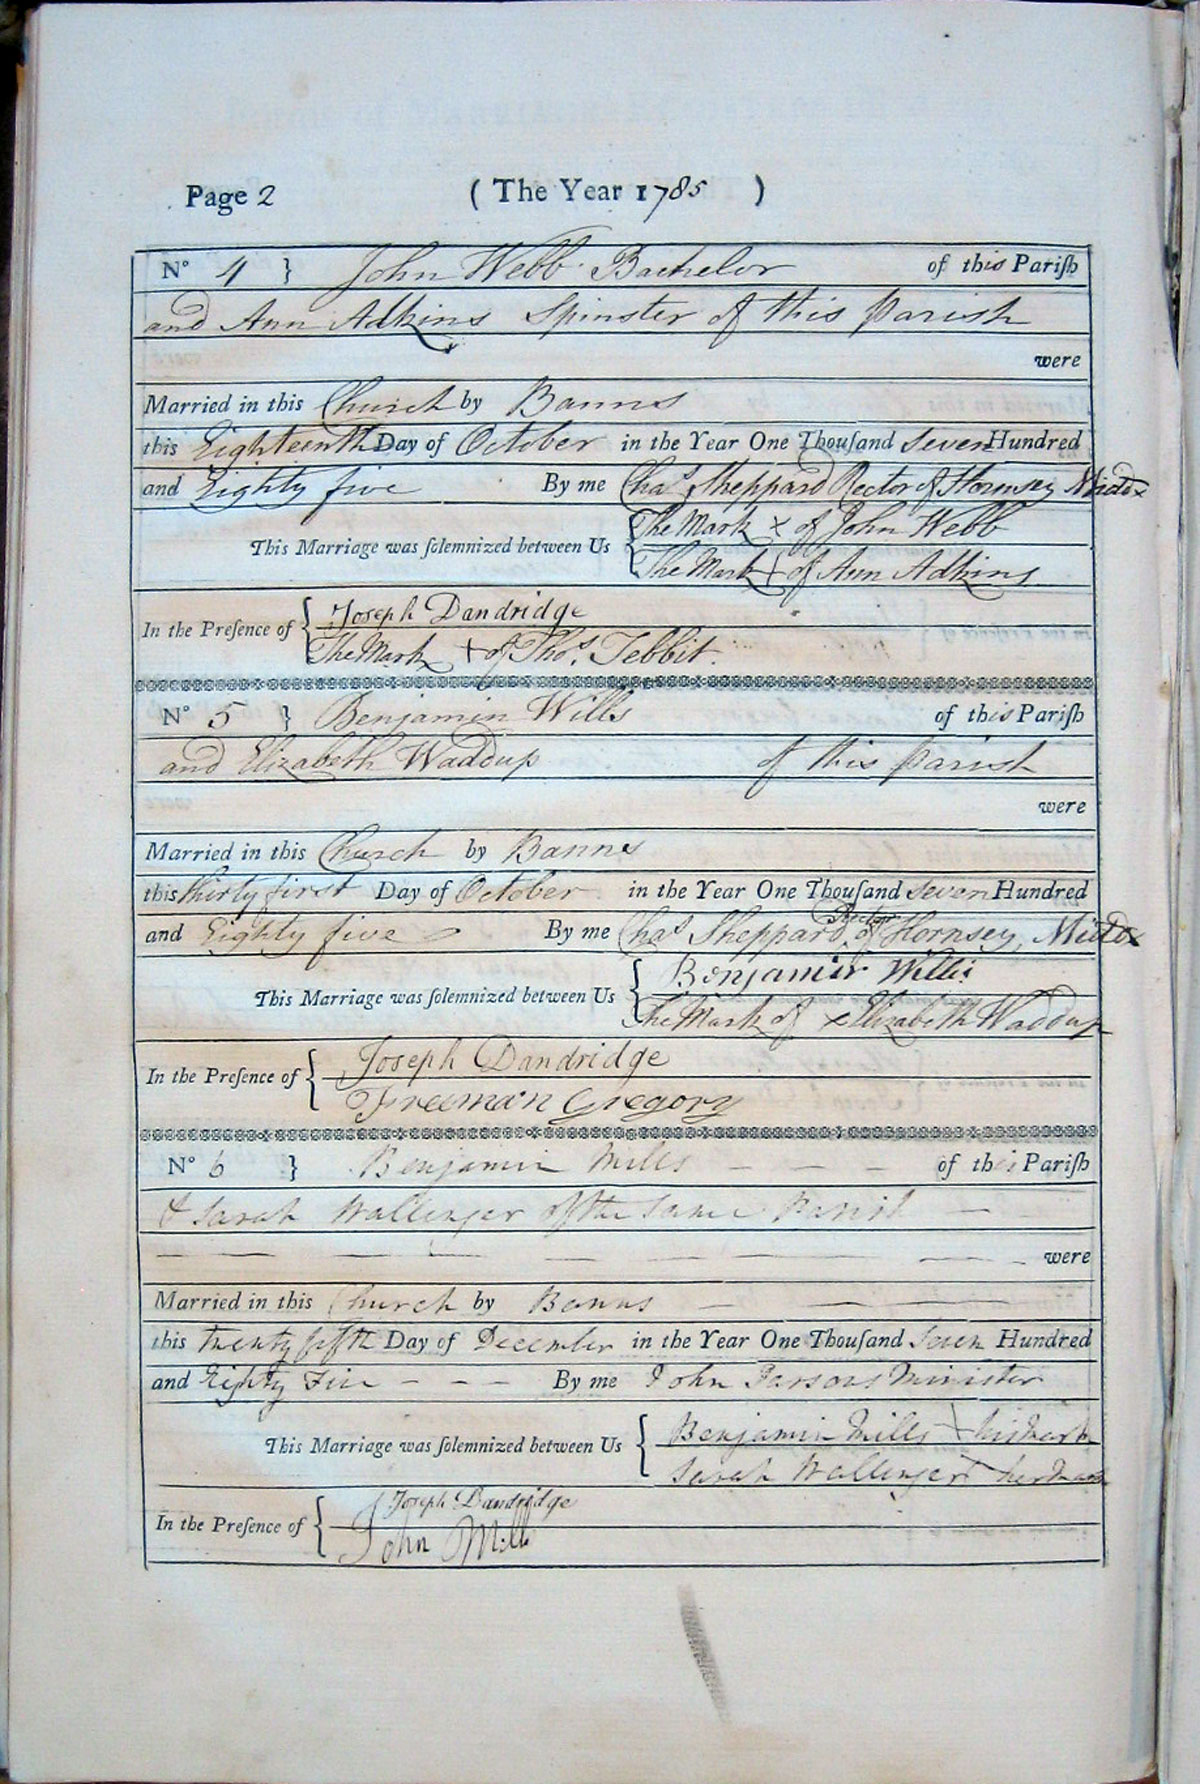 Page 2 ( The Year 1785 )
N° 4 } John Webb Bachelor of this Pariſh
and Ann Adkins Spinster of this Parish
were
Married in this Church by Banns
this Eighteenth Day of October in the Year One Thouſand Seven Hundred
and Eighty five By me Chas Sheppard Rector of Hornsey Middx
The Mark x of John Webb
This Marriage was ſolemnized between Us {
The Mark + of Ann Adkins
Joseph Dandridge
In the Preſence of {
The Mark + of Thos. Tebbit.
N° 5 } Benjamin Wills of this Pariſh
and Elizabeth Waddup of this Parish
were
Married in this Church by Banns
this thirty first Day of October in the Year One Thouſand Seven Hundred
and Eighty five By me Chas Sheppard Rector of Hornsey, Middx
Benjamin Wills
This Marriage was ſolemnized between Us {
The Mark of x Elizabeth Waddup
Joseph Dandridge
In the Preſence of {
Freeman Gregory
N° 6 } Benjamin Mills — — — of this Pariſh
& Sarah Wallinger of the same Parish —
— — — — — — — — were
Married in this Church by Banns — — —
this twenty fifth Day of December in the Year One Thouſand Seven Hundred
and Eighty Five - - - By me John Parsons Minister
Benjamin Mills + his mark
This Marriage was ſolemnized between Us {
Sarah Wallinger + her mark
Joseph Dandridge
In the Preſence of {
John Mills